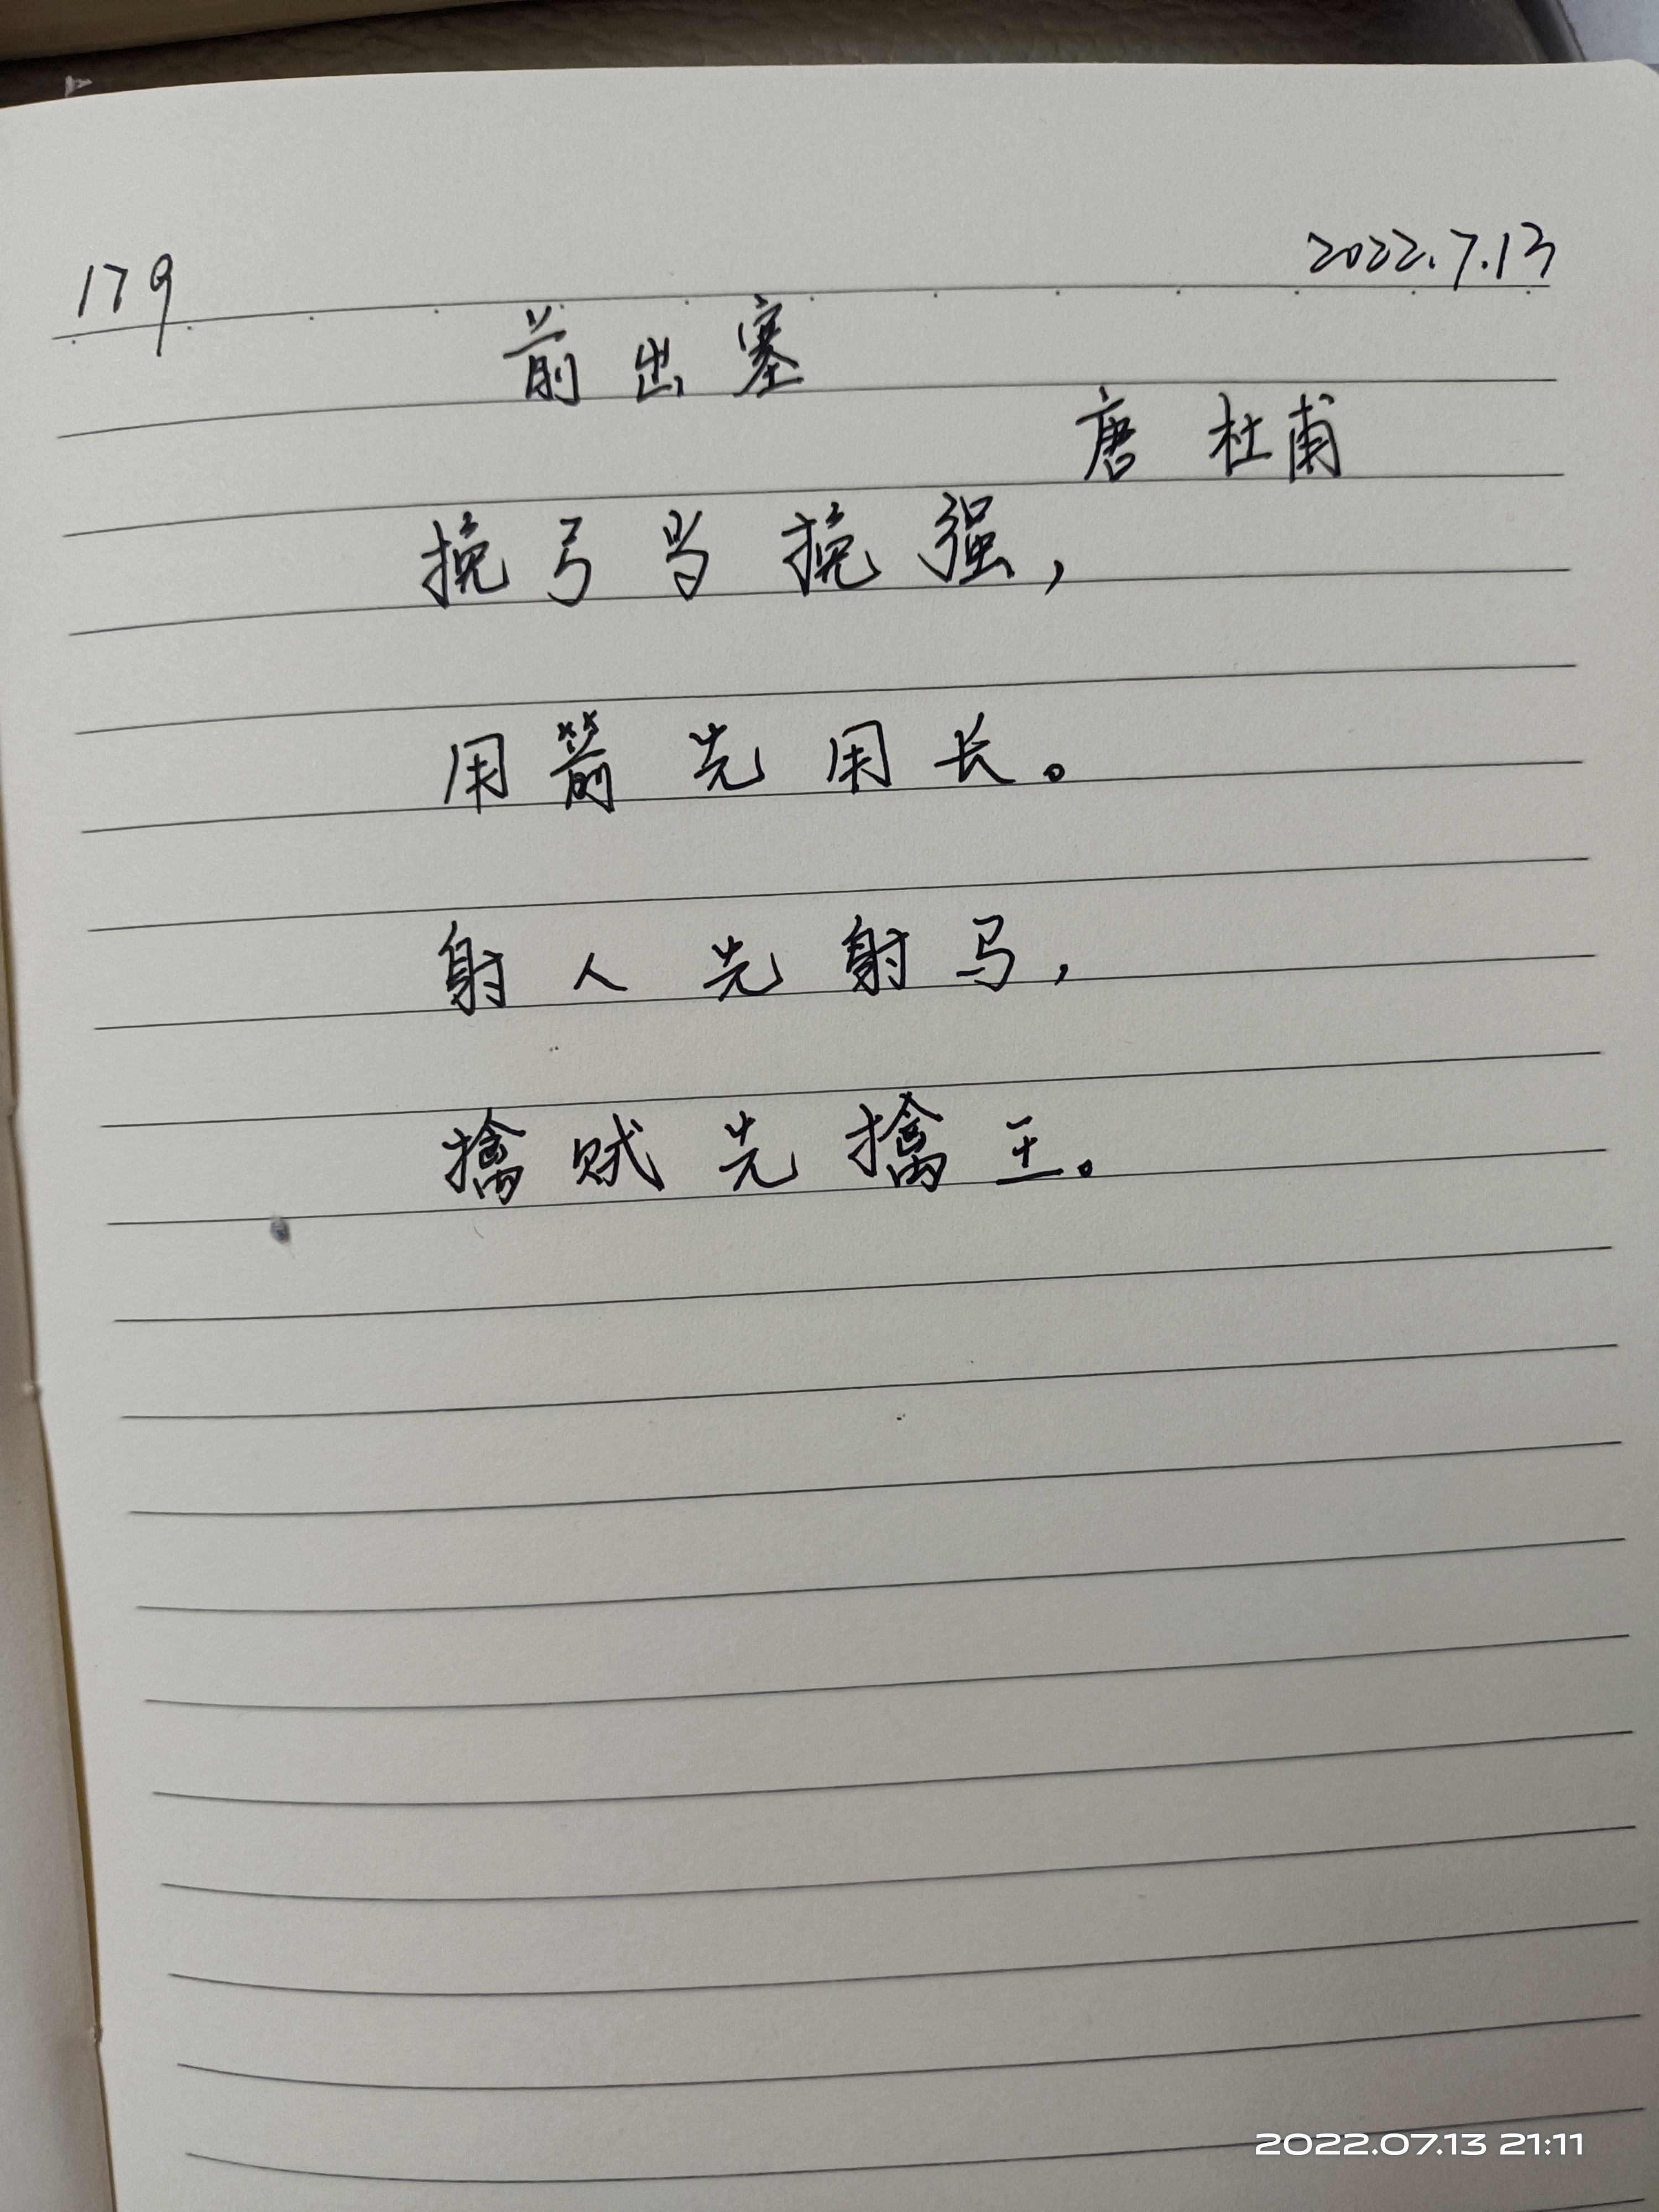 179 2022.7.13
前出塞
唐 杜甫
挽弓当挽强，
用箭先用长。
射人先射马，
擒贼先擒王。
2022.07.13 21:11